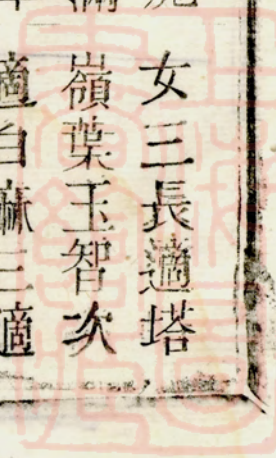 女三長適塔
嶺葉玉智次
適白麻三適